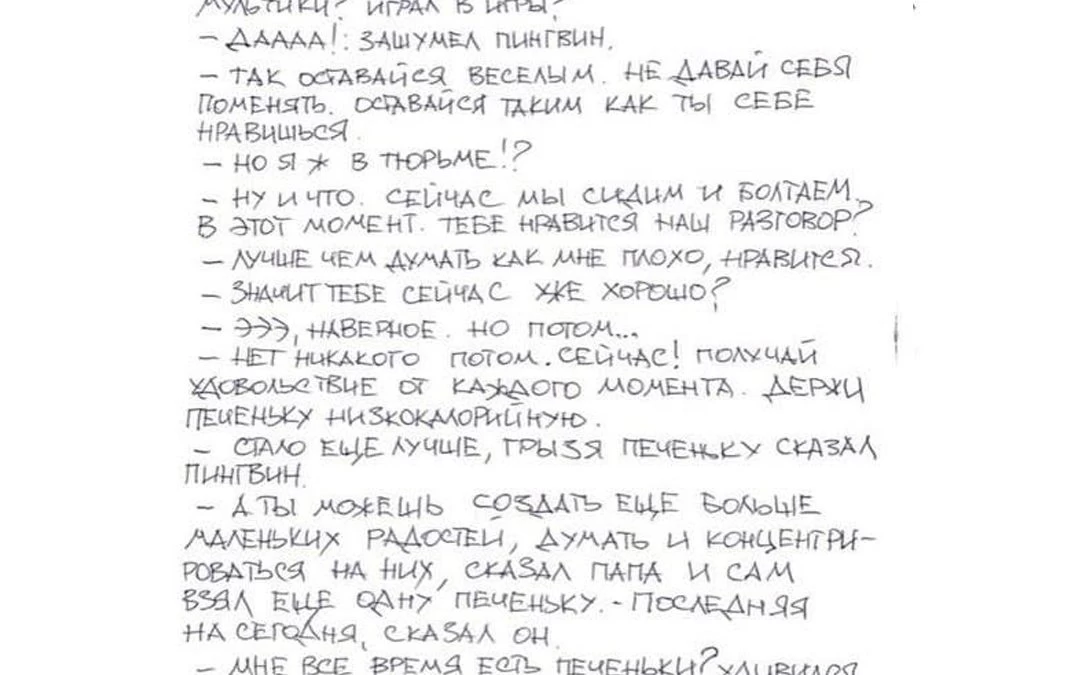 МУЛЬТИКИ? ИГРАЛ В ИГРЫ?
– ДАААА!: ЗАШУМЕЛ ПИНГВИН.
– ТАК ОСТАВАЙСЯ ВЕСЕЛЫМ. НЕ ДАВАЙ СЕБЯ
ПОМЕНЯТЬ. ОСТАВАЙСЯ ТАКИМ КАК ТЫ СЕБЕ
НРАВИШЬСЯ.
– НО Я Ж В ТЮРЬМЕ!?
– НУ И ЧТО. СЕЙЧАС МЫ СИДИМ И БОЛТАЕМ.
В ЭТОТ МОМЕНТ. ТЕБЕ НРАВИТСЯ НАШ РАЗГОВОР?
– ЛУЧШЕ ЧЕМ ДУМАТЬ КАК МНЕ ПЛОХО, НРАВИТСЯ.
– ЗНАЧИТ ТЕБЕ СЕЙЧАС УЖЕ ХОРОШО?
– ЭЭЭ, НАВЕРНОЕ. НО ПОТОМ...
– НЕТ НИКАКОГО ПОТОМ. СЕЙЧАС! ПОЛУЧАЙ
УДОВОЛЬСТВИЕ ОТ КАЖДОГО МОМЕНТА. ДЕРЖИ
ПЕЧЕНЬКУ НИЗКОКАЛОРИЙНУЮ.
– СТАЛО ЕЩЕ ЛУЧШЕ, ГРЫЗЯ ПЕЧЕНЬКУ СКАЗАЛ
ПИНГВИН.
– А ТЫ МОЖЕШЬ СОЗДАТЬ ЕЩЕ БОЛЬШЕ
МАЛЕНЬКИХ РАДОСТЕЙ, ДУМАТЬ И КОНЦЕНТРИ–
РОВАТЬСЯ НА НИХ, СКАЗАЛ ПАПА И САМ
ВЗЯЛ ЕЩЕ ОДНУ ПЕЧЕНЬКУ. – ПОСЛЕДНЯЯ
НА СЕГОДНЯ, СКАЗАЛ ОН.
– МНЕ ВСЕ ВРЕМЯ ЕСТЬ ПЕЧЕНЬКИ? УДИВИЛСЯ